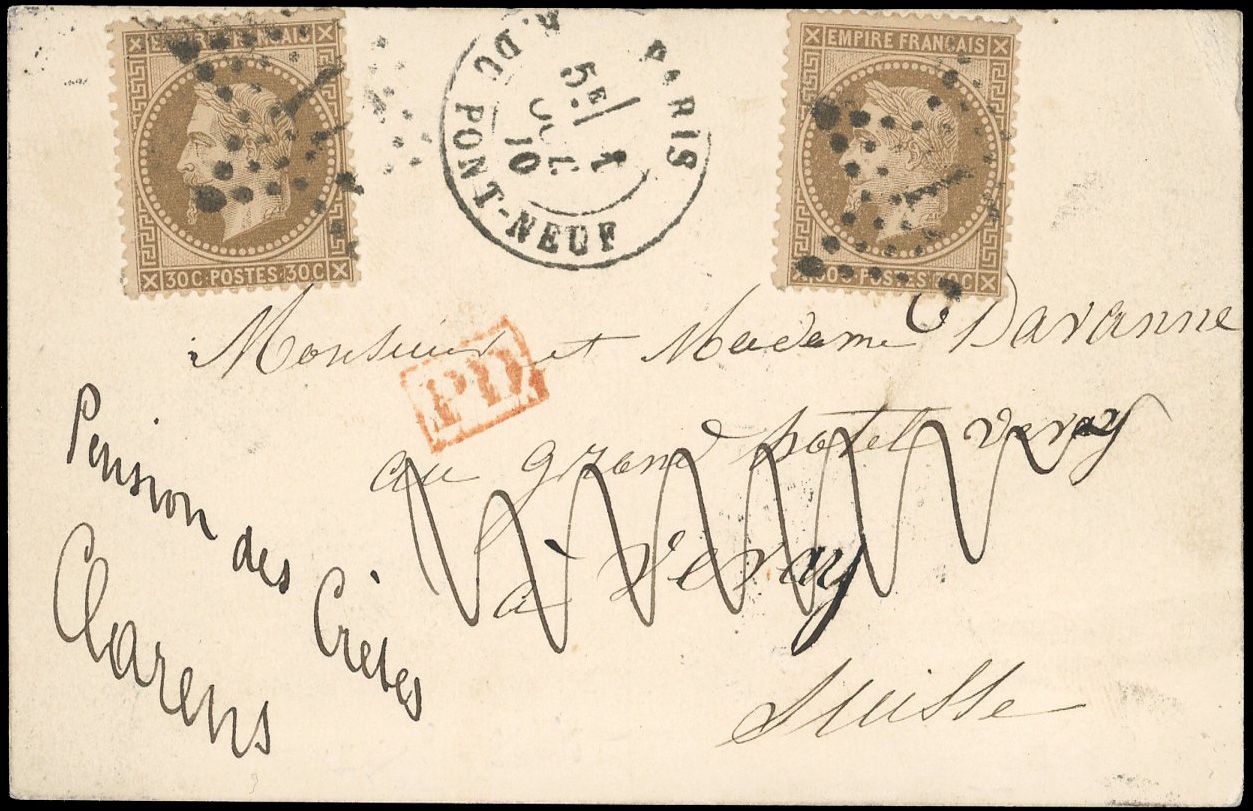 EMPIRE FRANÇAIS
30C POSTES 30C
R. DU PONT-NEUF PARIS
5E
1
JUIL
70
EMPIRE FRANÇAIS
30C POSTES 30C
Monsieur et Madame Davanne
PD
au grand hotel vevay
à Vevay
Suisse
Pension des Crètes
Clarens